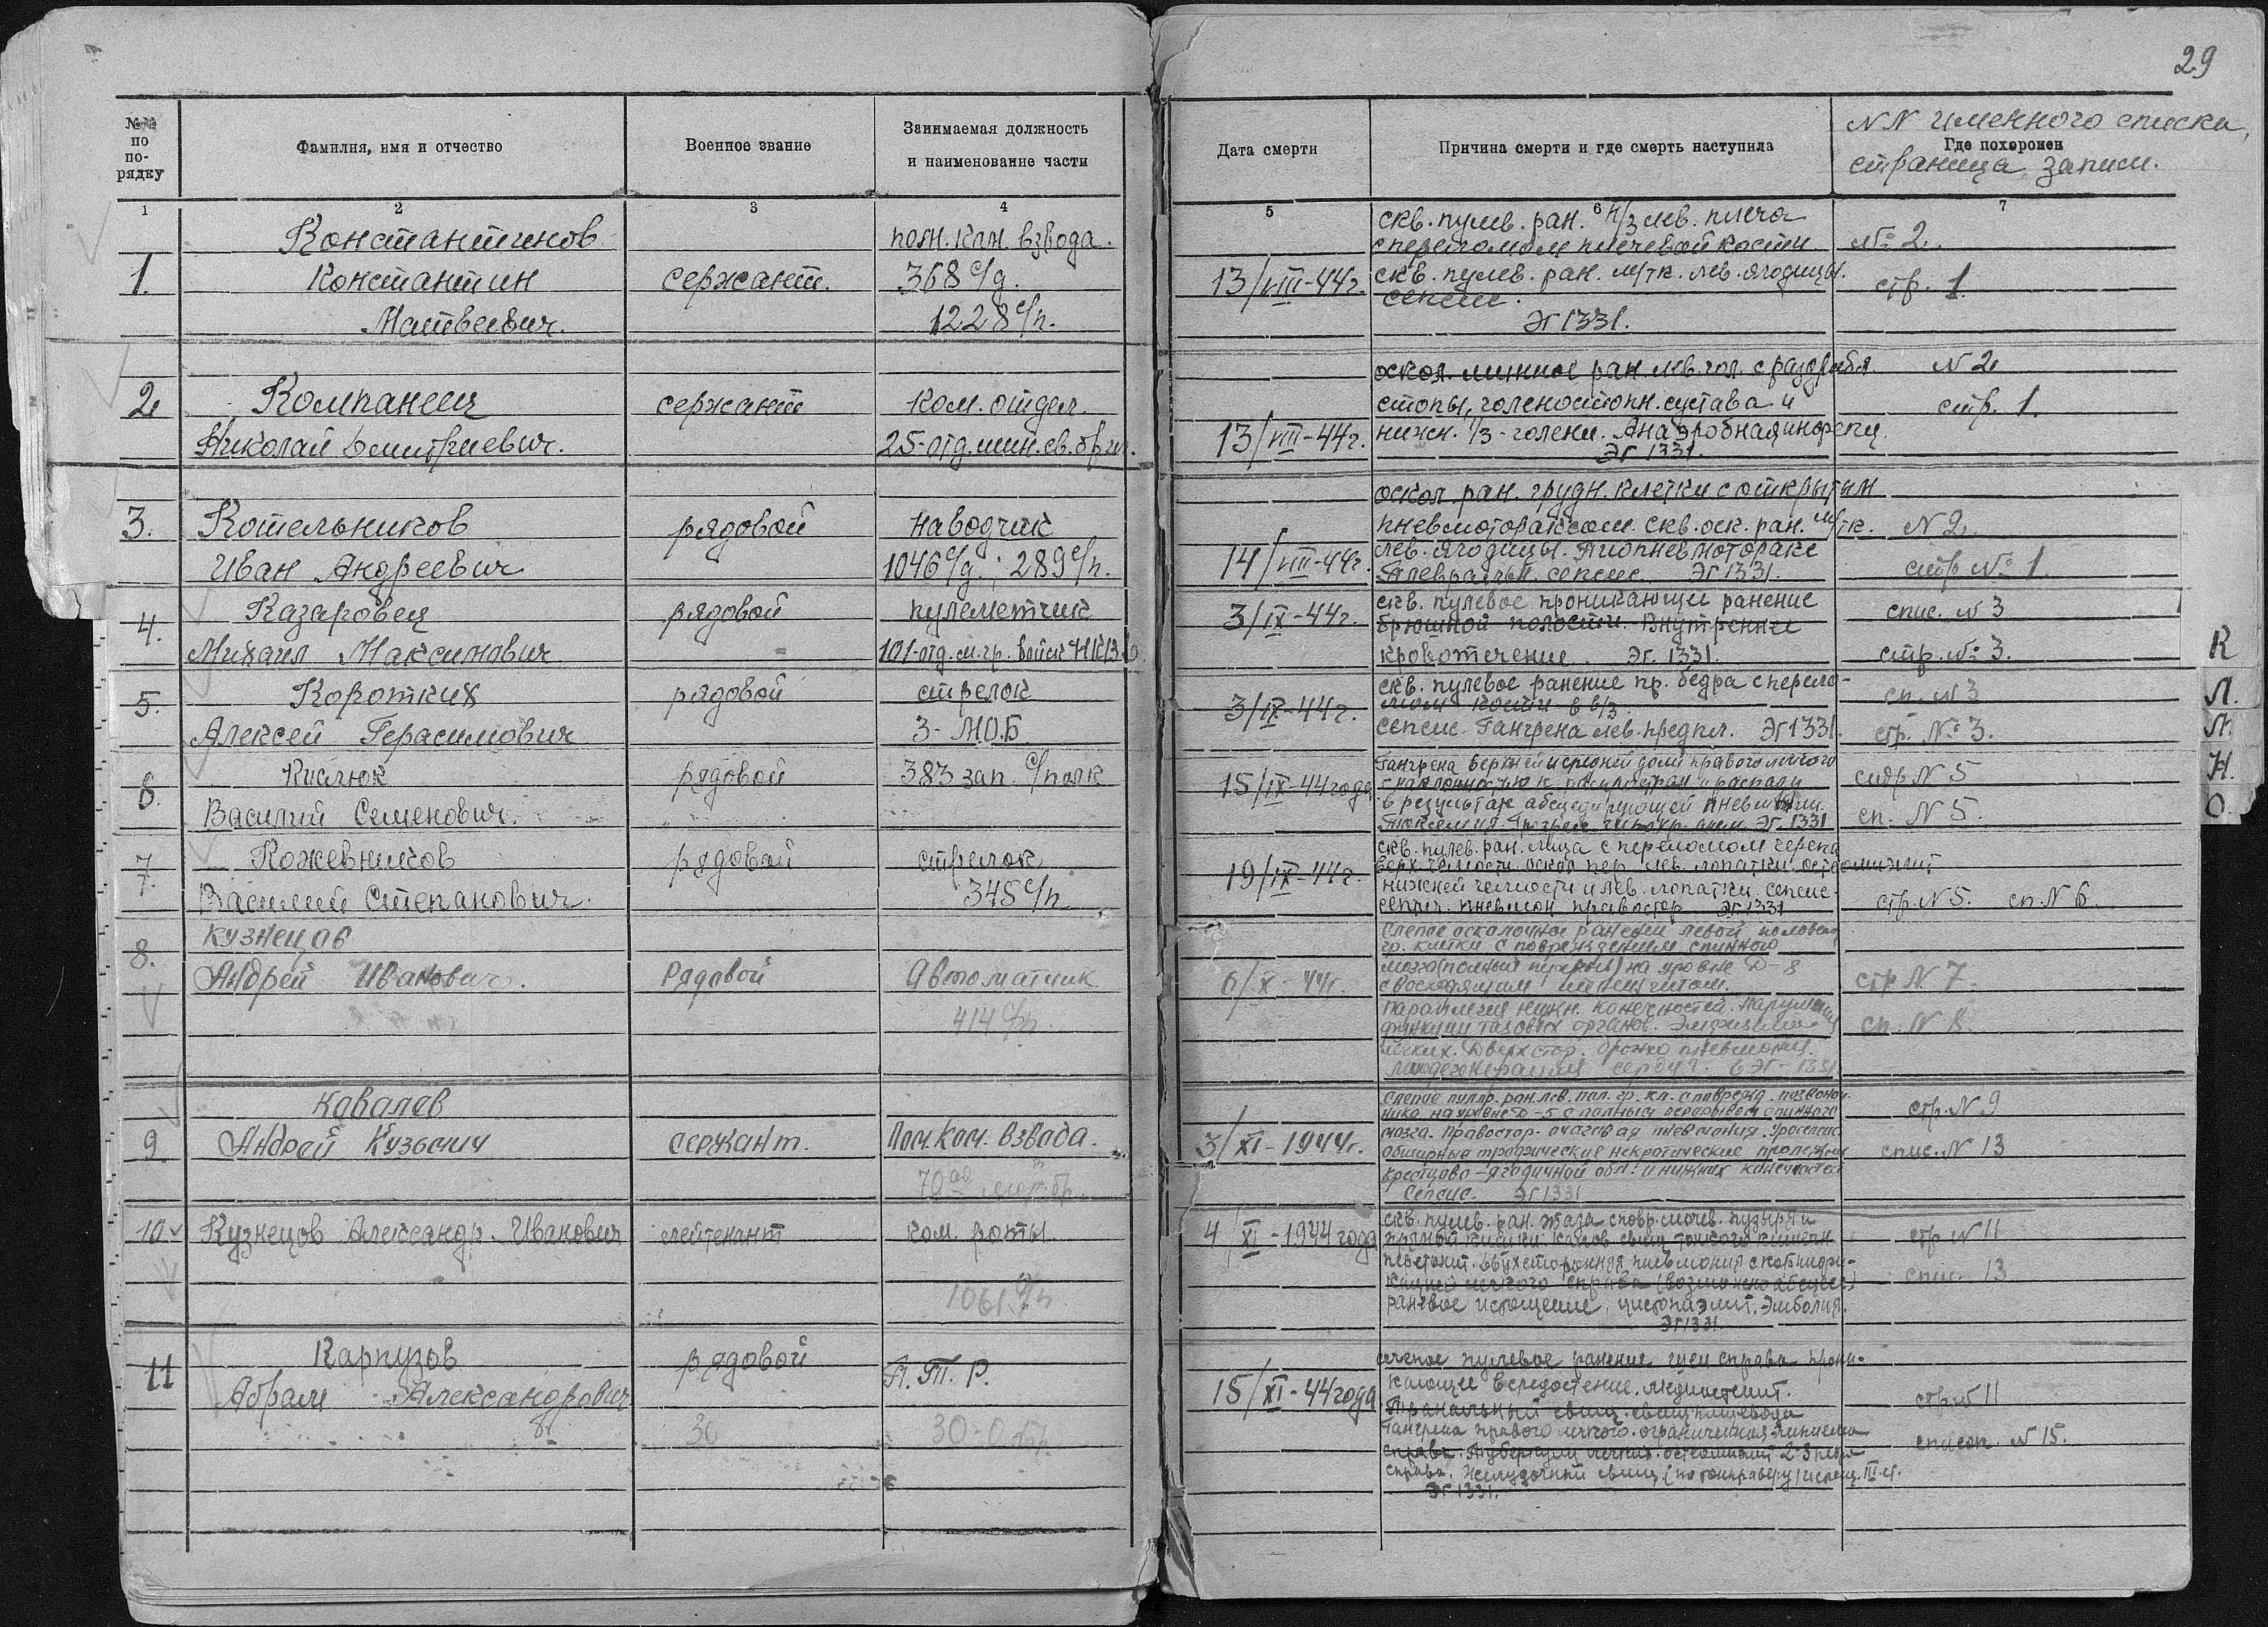 29
№№ по по-рядку
Фамилия, имя и отчество
Военное звание
Занимаемая должность
и наименование части
Дата смерти
Причина смерти и где смерть наступила
NN именного списка,
Где похоронен
страница записи.
1 2 3 4 5 6 7
1.
Константинов
Константин
Матвеевич.
сержант.
пом. ком. взвода.
368 с/д.
1228 с/п.
13/VIII-44г.
скв. пулев. ран. н/з лев. плеча
с переломом плечевой кости
скв. пулев. ран. м/тк. лев. ягодицы.
сепсис.
ЭГ 1331.
№ 2.
стр. 1.
2
Компанеец
Николай Дмитриевич.
сержант
ком. отдел.
25-отд. мин. св. бриг.
13/VIII-44г.
оскол. минное ран. лев. гол. с раздробл
стопы, голеностопн. сустава и
нижн. 1/3-голени. Анаэробная инфекц.
ЭГ 1331.
N 2
стр. 1.
3.
Котельников
Иван Андреевич
рядовой
наводчик
1046 с/д.; 289 с/п.
14/VIII-44г.
оскол. ран. грудн. клетки с открытым
пневмотораксом. скв. оск. ран. м/тк.
лев. ягодицы. Пиопневмоторакс
сепсис ЭГ 1331.
N 2
стр № 1.
4.
Казаровец
Михаил Максимович
рядовой
пулеметчик
101-отд. м. гр. войск НКВД
3/IX-44г.
скв. пулевое проникающее ранение
брюшной полости. Внутреннее
кровотечение. Эг. 1331.
спис. N 3
стр. № 3.
5.
Коротких
Алексей Герасимович
рядовой
стрелок
3-М.О.Б
3/IX-44г.
скв. пулевое ранение пр. бедра с перело-
мом кости в в/з.
сепсис. Гангрена лев. предпл. ЭГ 1331.
сп. N 3
стр. № 3.
6.
Кислюк
Василий Семенович.
рядовой
383 зап. с/полк
15/IX-44 года
Гангрена верхней и средней доли правого легкого
с наклонностью к распростран и распаду
в результате абсцедирующей пневмонии.
ЭГ. 1331
стр N 5
сп. N 5.
7
7.
Кожевников
Василий Степанович.
рядовой
стрелок
345 с/п
19/IX-44г.
скв. пулев. ран. лица с переломом черепа
верх. челюсти. оскол пер. лев. лопатки. остеомиелит
нижней челюсти и лев. лопатки. сепсис.
септич. пневмон правостор ЭГ 1331
стр. N 5. сп. N 6.
8.
Кузнецов
Андрей Иванович.
Рядовой
Автоматчик
414 с/п
6/X-44г.
Слепое осколочное ранение левой половины
гр. клетки с повреждением спинного
мозга (полный перерыв) на уровне D-8
с восходящим менингитом.
Параплегия нижн. конечностей. Нарушение
функции тазовых органов. Эмфизема
легких. Двухстор. бронхо пневмония.
Миодегенерация сердца. в ЭГ-1331
стр N 7.
сп. N 8.
9
Ковалев
Андрей Кузьмич
сержант.
Пом. Ком. Взвода.
70ая мот. бр.
3/XI-1944г.
Слепое пулев. ран. лев. пол. гр. кл. с поврежд. позвоноч-
ника на уровне D-5 с полным перерывом спинного
мозга. Правостор. очаговая пневмония. Уросепсис.
Обширные трофические некротические пролежни
крестцово-ягодичной обл. и нижних конечностей
Сепсис. ЭГ 1331
стр. N 9
спис. N 13
10
Кузнецов Александр Иванович
лейтенант
ком. роты
1061 с/п
4/XI-1944 года
скв. пулев. ран. таза с повр. мочев. пузыря и
прямой кишки. Калов. свищ тонкого кишечн.
перетонит. Двухсторонняя пневмония с
легкого справа (возможно абсцесс)
раневое истощение, цистопиэлит. Эмболия.
ЭГ 1331
стр N 11
спис. 13
11
Карпузов
Абрам Александрович
рядовой
П. Т. Р.
30
30-0
15/XI-44 года
слепое пулевое ранение шеи справа прони-
кающее в средостение. медиастенит.
свищ. свищ пищевода
Гангрена правого легкого. ограниченная эмпиема
справа. Туберкулез легких. остеомиелит 2-3 ребра
справа. Желудочный свищ
ЭГ 1331.
стр N 11
список N 15.
К
Л.
М
Н.
О.